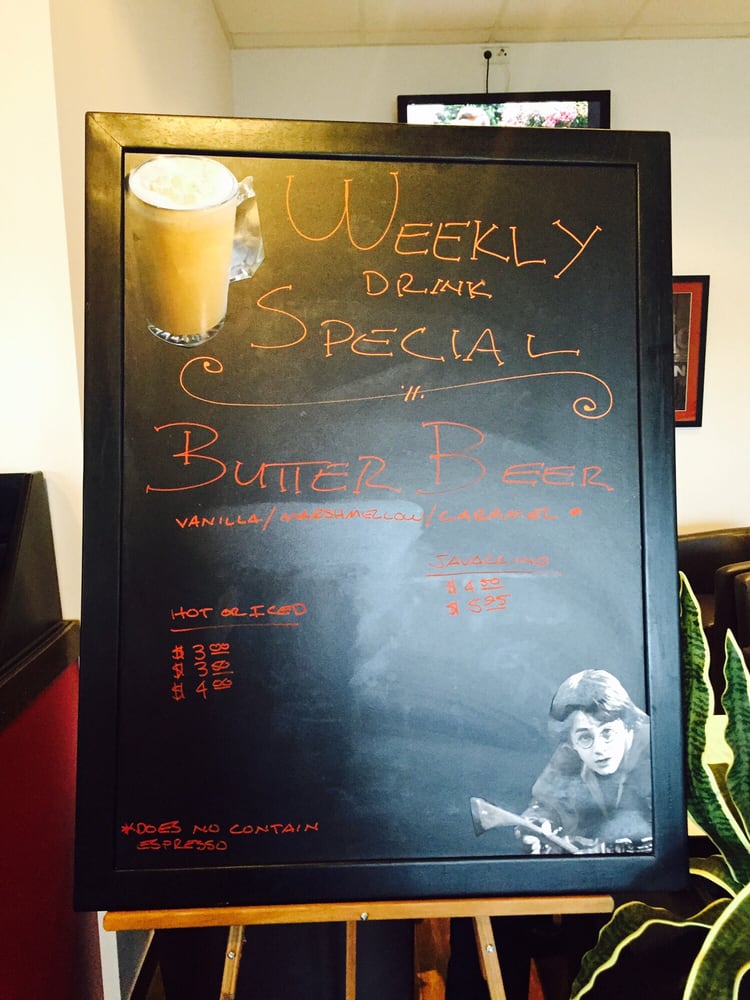 WEEKLY
DRINK
SPECIAL
BUTTER BEER
VANILLA/MARSHMELLOW/CARAMEL *
JAVALLINO
$4.50
$5.25
HOT OR ICED
$3.00
$3.50
$4.00
*DOES NO CONTAIN
ESPRESSO